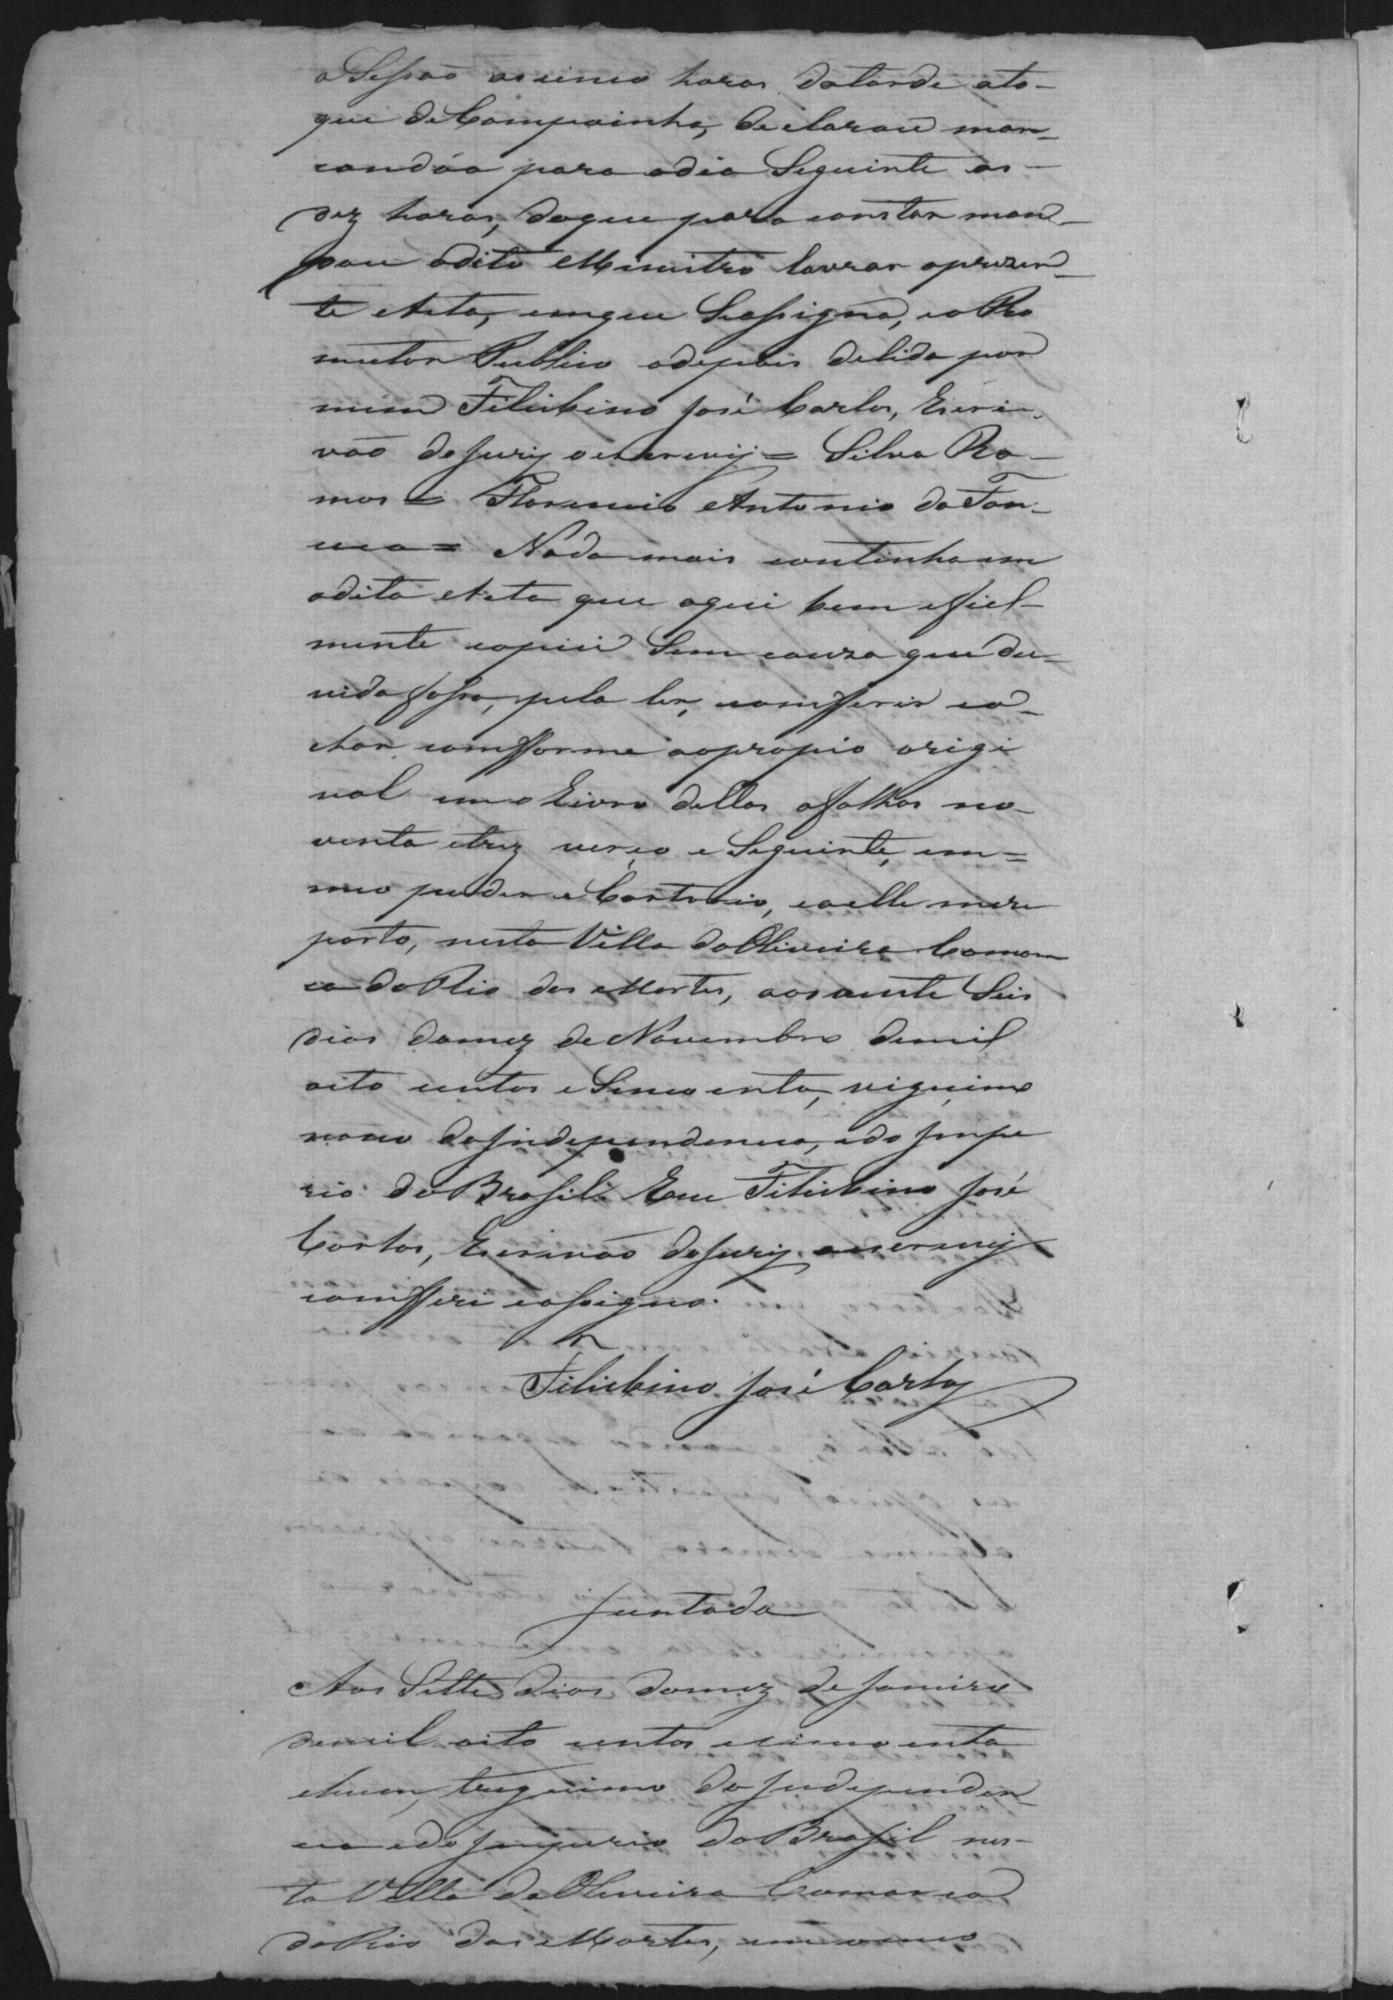 a Sessão as cinco horas datarde ato-
que de Campainha, declarou mar-
candôa para odia Seguinte as-
dez horas, doque para constar man-
dou odito Menistro lavrar aprezen-
te Acta, emque Seassigna, eo Pro
mutor Publico edepois delida por
mim Filisbino José Carlos, Escri-
vão doJury oescrevij = Silva Ra-
mos = Florencio Antonio daFon-
ceca = Nada mais continha em
adita Acta que aqui bem efiel-
mente copiei Sem couza que du-
vida faça, pela ler, comfferir ea-
char comfforme aopropio origi
nal em o Livro dellas afolhas no-
venta etrez verço e Seguinte, em=
meo puder e Cartorio, eaelle mere
porto, nesta Villa daOliveira Comar
ca doRio das Mortes, aosvinte Seis
dias domez de Novembro demil
oito centos e Sincoenta, vigecimo
nono daJndependencia, edo Jmpe
rio do Brasil. Eeu Filisbino José
Carlos, Escrivão doJury oescrevij
comfferi eassigno.
Filisbino José Carlos
Juntada
Aos Sette dias domez de Janeiro
demil oito centos esincoenta
ehum, trigecimo daJndependen-
cia edoJmperio doBrasil nes-
ta Villa da Oliveira Comarca
doRio das Mortes, em meo